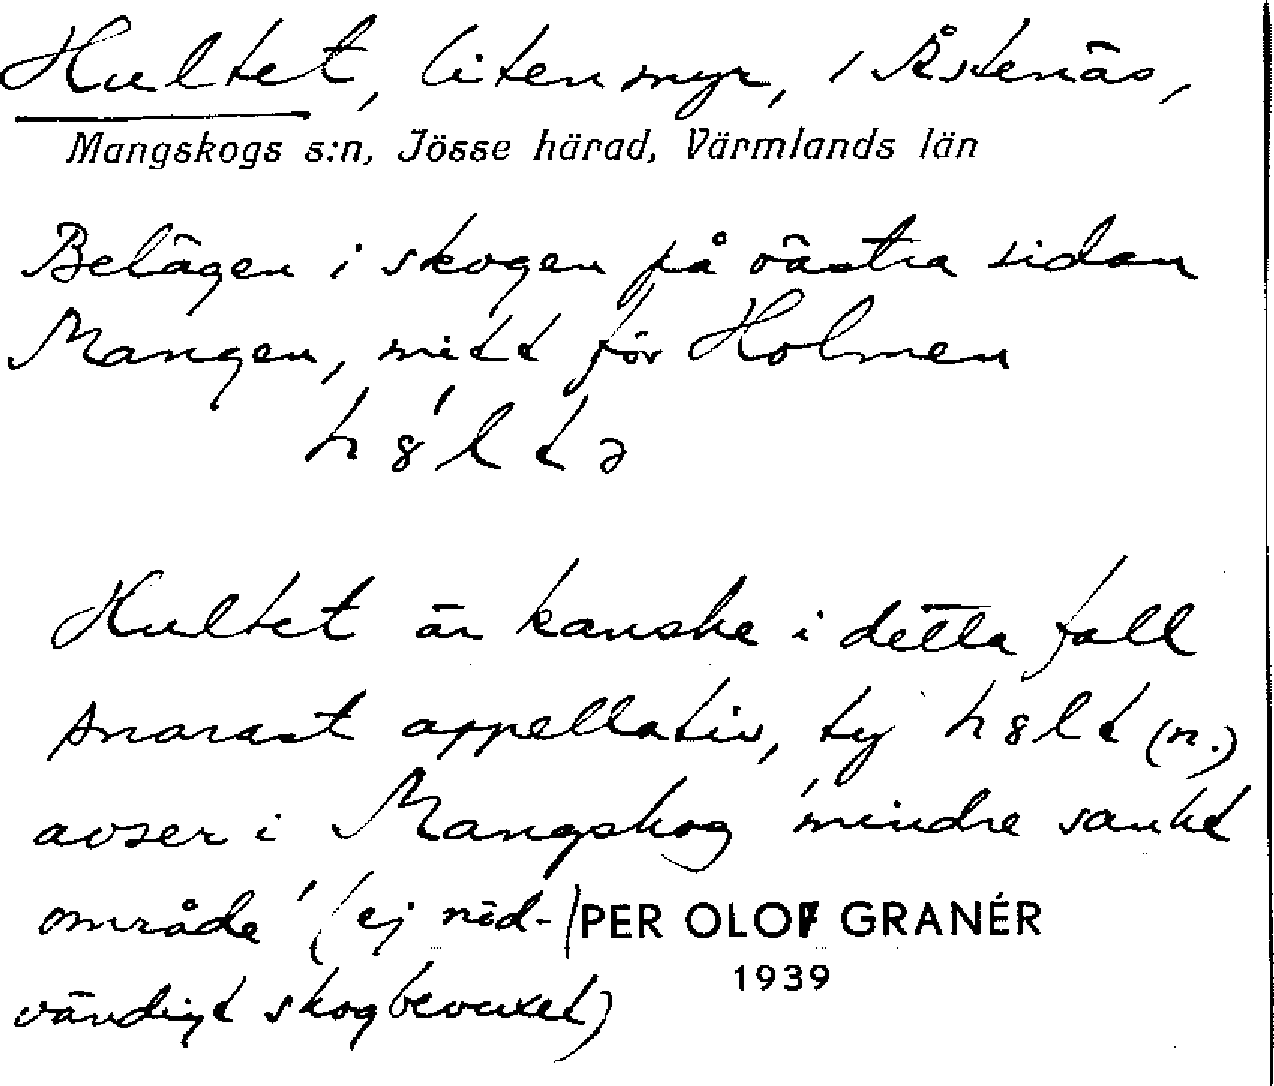 Hultet, liten myr, i Åstenäs,
Mangskogs s:n, Jösse härad, Värmlands län
Belägen i skogen på västra sidan
Mangen, mitt för Holmen
h8́ltə
Hultet är kanske i detta fall
snarast appellativ, ty h8lt (n.)
avser i Mangskog 'mindre sankt
område' (ej nöd-
PER OLOF GRANÉR
1939
vändigt skogbevuxet)